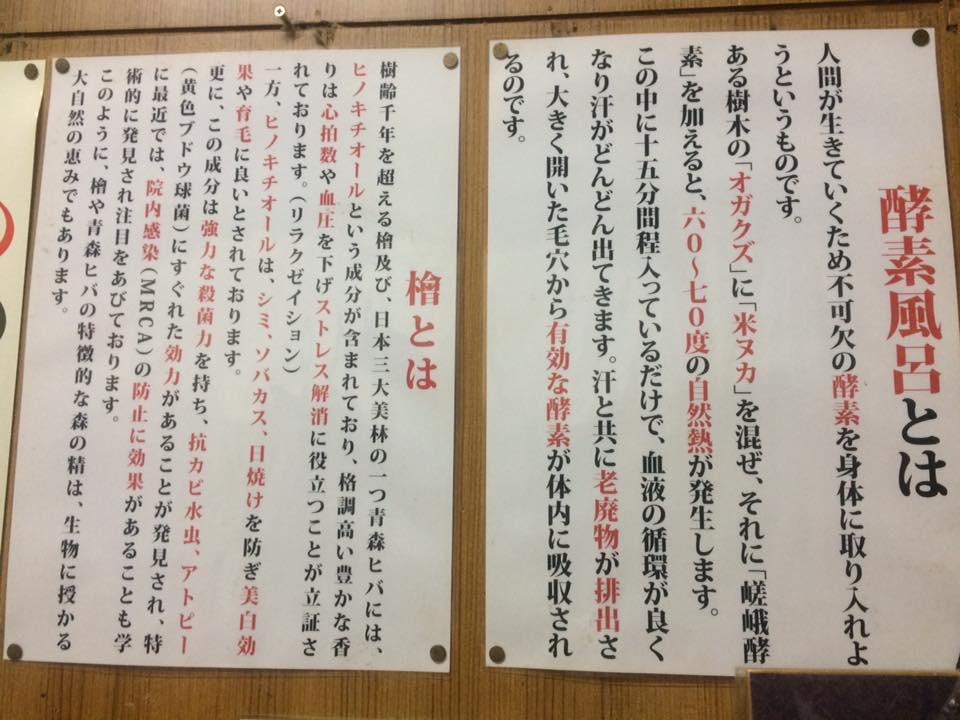 酵素風呂とは
人間が生きていくため不可欠の酵素を身体に取り入れよ
うというものです。
ある樹木の「オガクズ」に「米ヌカ」を混ぜ、それに「嵯峨酵
素」を加えると、六0〜七0度の自然熱が発生します。
この中に十五分間程入っているだけで、血液の循環が良く
なり汗がどんどん出てきます。汗と共に老廃物が排出さ
れ、大きく開いた毛穴から有効な酵素が体内に吸収され
るのです。
檜とは
樹齢千年を超える檜及び、日本三大美林の一つ青森ヒバには、
ヒノキチオールという成分が含まれており、格調高い豊かな香
りは心拍数や血圧を下げストレス解消に役立つことが立証さ
れております。(リラクゼイション)
一方、ヒノキチオールは、シミ、ソバカス、日焼けを防ぎ美白効
果や育毛に良いとされております。
更に、この成分は強力な殺菌力を持ち、抗カビ水虫、アトピー
(黄色ブドウ球菌)にすぐれた効力があることが発見され、特
に最近では、院内感染(MRCA)の防止に効果があることも学
術的に発見され注目をあびております。
このように、檜や青森ヒバの特徴的な森の精は、生物に授かる
大自然の恵みでもあります。